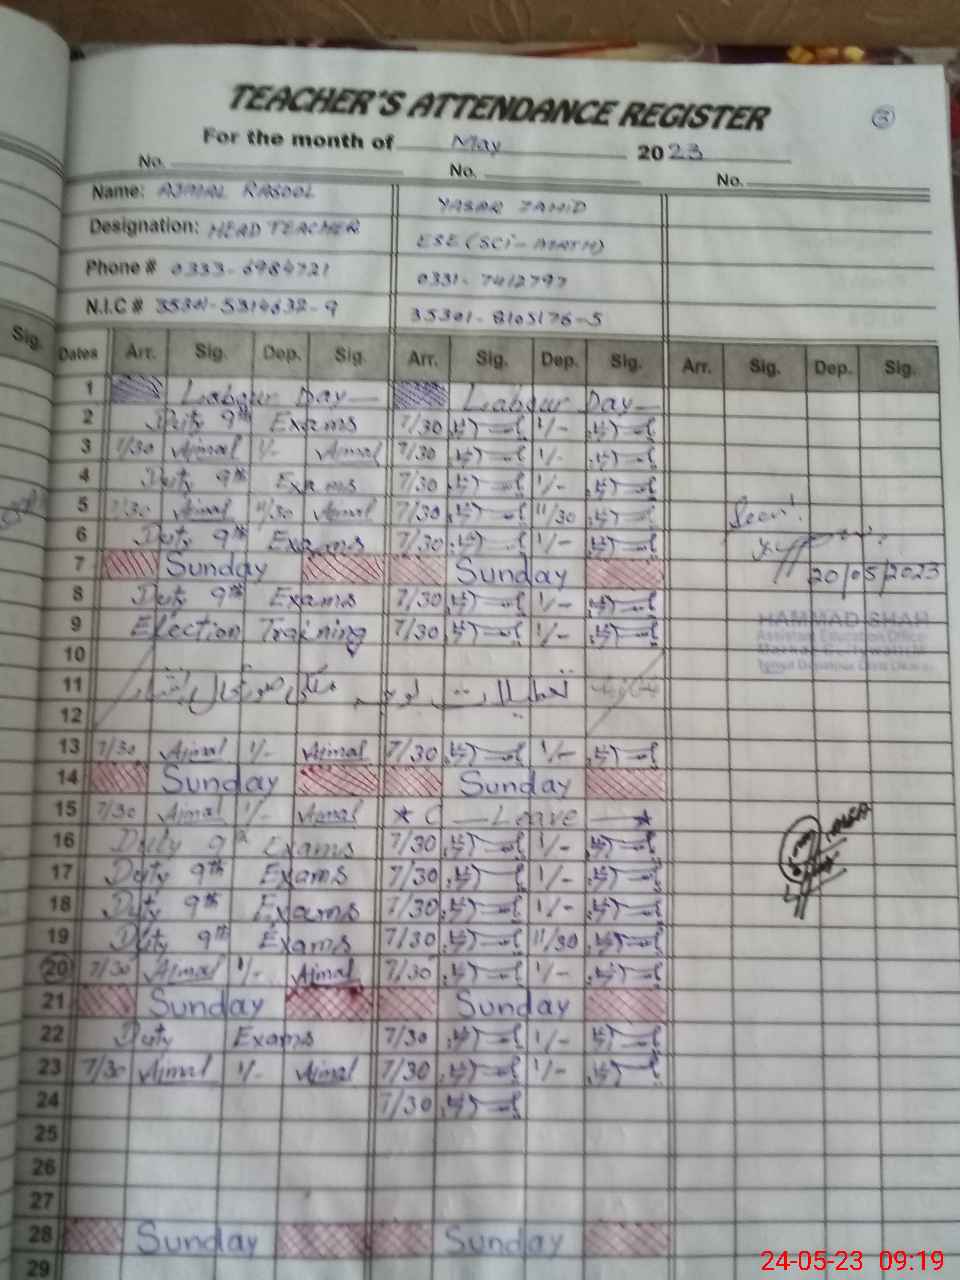 TEACHER'S ATTENDANCE REGISTER
3
For the month of May 2023
No. No. No.
Name: AJMAL RASOOL YASAR ZAHID
Designation: HEAD TEACHER ESE (SCI-MATH)
Phone # 0333-6984721 0331-7412797
N.I.C # 35301-5314632-9 35301-8105176-5
Sig. Dates Arr. Sig. Dep. Sig. Arr. Sig. Dep. Sig. Arr. Sig. Dep. Sig.
1 Labour Day Labour Day
2 Duty 9th Exams 7/30 1/-
3 7/30 Ajmal 1/- Ajmal 7/30 1/-
4 Duty 9th Exams 7/30 1/-
5 7/30 Ajmal 11/30 Ajmal 7/30 11/30 Seen!
6 Duty 9th Exams 7/30 1/-
7 Sunday Sunday 20/05/2023
8 Duty 9th Exams 7/30 1/-
9 Election Training 7/30 1/- HAMMAD SHAH
Assistant Education Officer
10
11
12
13 7/30 Ajmal 1/- Ajmal 7/30 1/-
14 Sunday Sunday
15 7/30 Ajmal 1/- Ajmal C Leave
16 Duty 9th Exams 7/30 1/-
17 Duty 9th Exams 7/30 1/-
18 Duty 9th Exams 7/30 1/-
19 Duty 9th Exams 7/30 11/30
20 7/30 Ajmal 1/- Ajmal 7/30 1/-
21 Sunday Sunday
22 Duty Exams 7/30 1/-
23 7/30 Ajmal 1/- Ajmal 7/30 1/-
24 7/30
25
26
27
28 Sunday Sunday
29
24-05-23 09:19